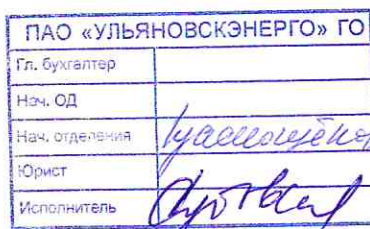 ПАО «УЛЬЯНОВСКЭНЕРГО» ГО
Гл. бухгалтер
Нач. ОД
Нач. отделения
Юрист
Исполнитель